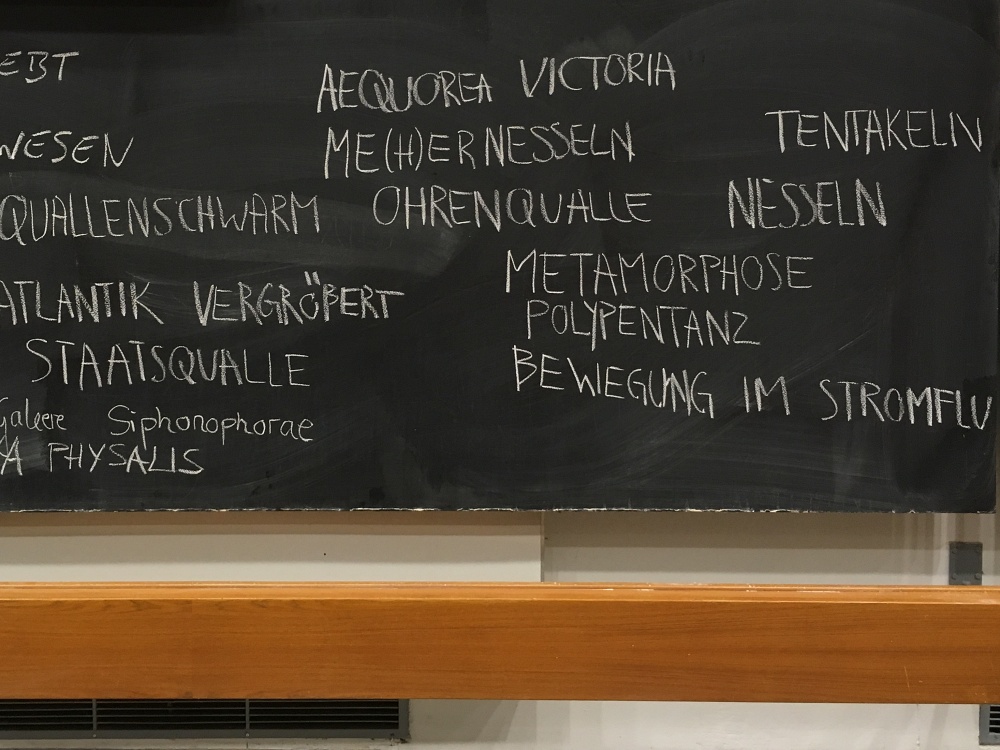 EBT
AEQUOREA VICTORIA
WESEN
ME(H)ER NESSELN
TENTAKELN
QUALLENSCHWARM
OHRENQUALLE
NESSELN
ATLANTIK VERGRÖBERT
METAMORPHOSE
POLYPENTANZ
STAATSQUALLE
BEWEGUNG IM STROMFLU
Galeere Siphonophorae
A PHYSALIS